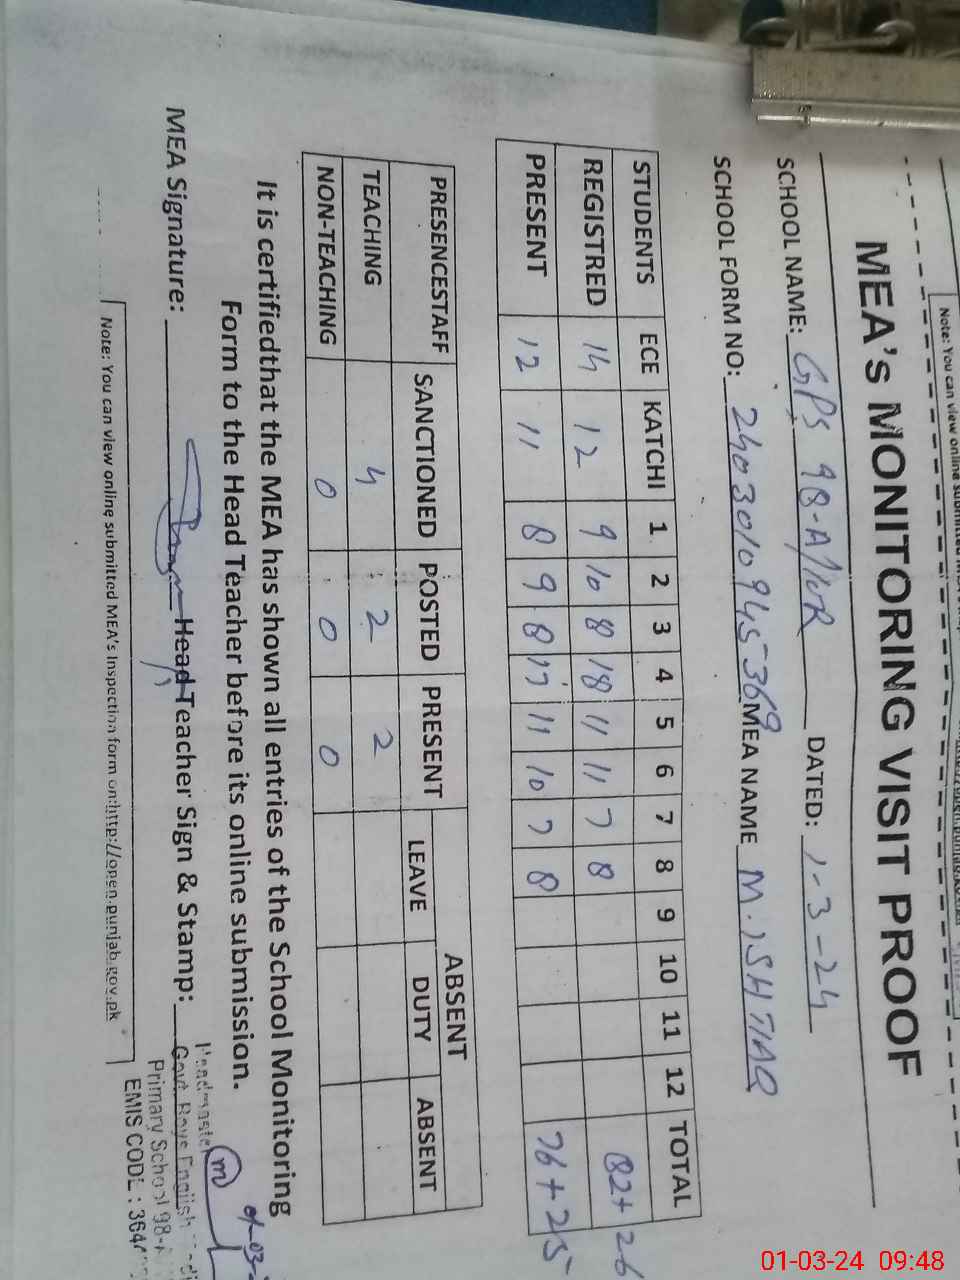 Note: You can view online
MEA's MONITORING VISIT PROOF
SCHOOL NAME: GPS 98-A/10R DATED: 1-3-24
SCHOOL FORM NO: 2403010945369 MEA NAME M.ISHTIAQ
STUDENTS ECE KATCHI 1. 2 3 4 5 6 7 8 9 10 11 12 TOTAL
REGISTRED 14 12 9 10 8 18 11 11 7 8 82+26
PRESENT 12 11 8 9 8 17 11 10 7 8 76+25
PRESENCESTAFF SANCTIONED POSTED PRESENT ABSENT
LEAVE DUTY ABSENT
TEACHING 4 2 2
NON-TEACHING 0 0 0
It is certifiedthat the MEA has shown all entries of the School Monitoring
Form to the Head Teacher before its online submission.
MEA Signature: Head Teacher Sign & Stamp:
Headmaster
Govt. Boys English
Primary School 98-A
EMIS CODE : 364
Note: You can view online submitted MEA's Inspection form on:http://open.punjab.gov.pk
01-03-24 09:48